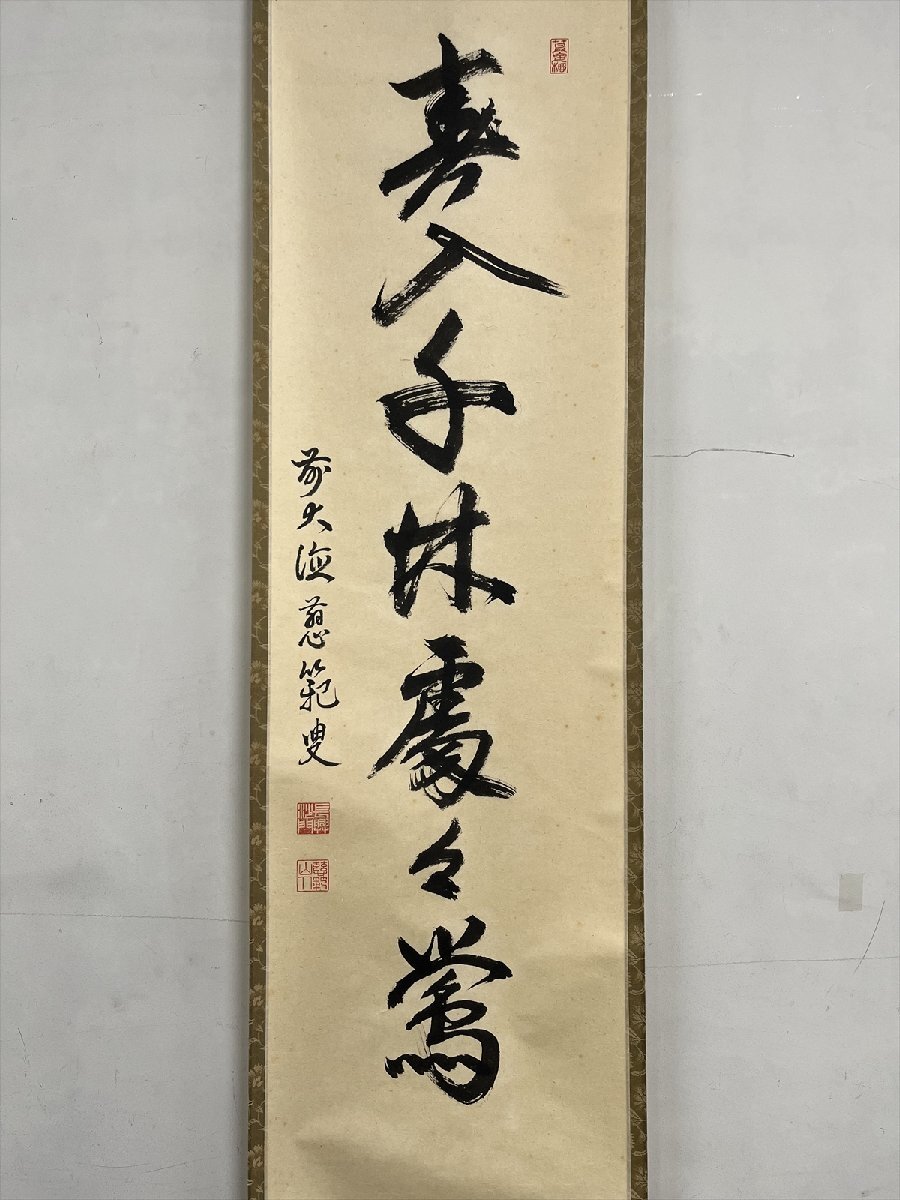 春入千林處々鶯
前大徳慈範叟